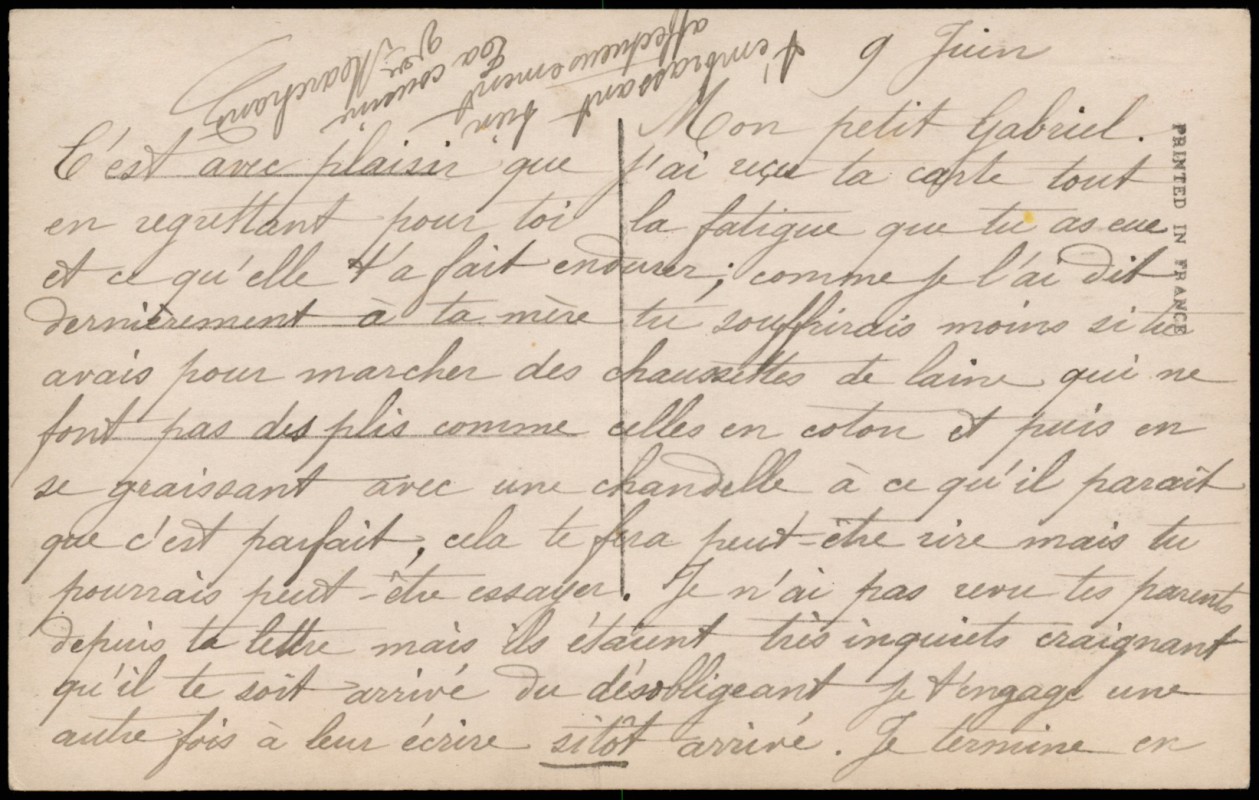 9 Juin
Mon petit Gabriel.
C'est avec plaisir que j'ai reçue ta carte tout
en regrettant pour toi la fatigue que tu as eue
et ce qu'elle t'a fait endurer; comme je l'ai dit
dernièrement à ta mère tu souffrirais moins si tu
avais pour marcher des chaussettes de laine qui ne
font pas des plis comme celles en coton et puis en
se graissant avec une chandelle à ce qu'il parait
que c'est parfait, cela te fera peut-être rire mais tu
pourrais peut-être essayer. Je n'ai pas revu tes parents
depuis ta lettre mais ils étaient très inquiets craignant
qu'il te soit arrivé du désobligeant je t'engage une
autre fois à leur écrire sitôt arrivé. Je termine en
t'embrassant bien
affectueusement
Ta cousine
Marchand
PRINTED IN FRANCE